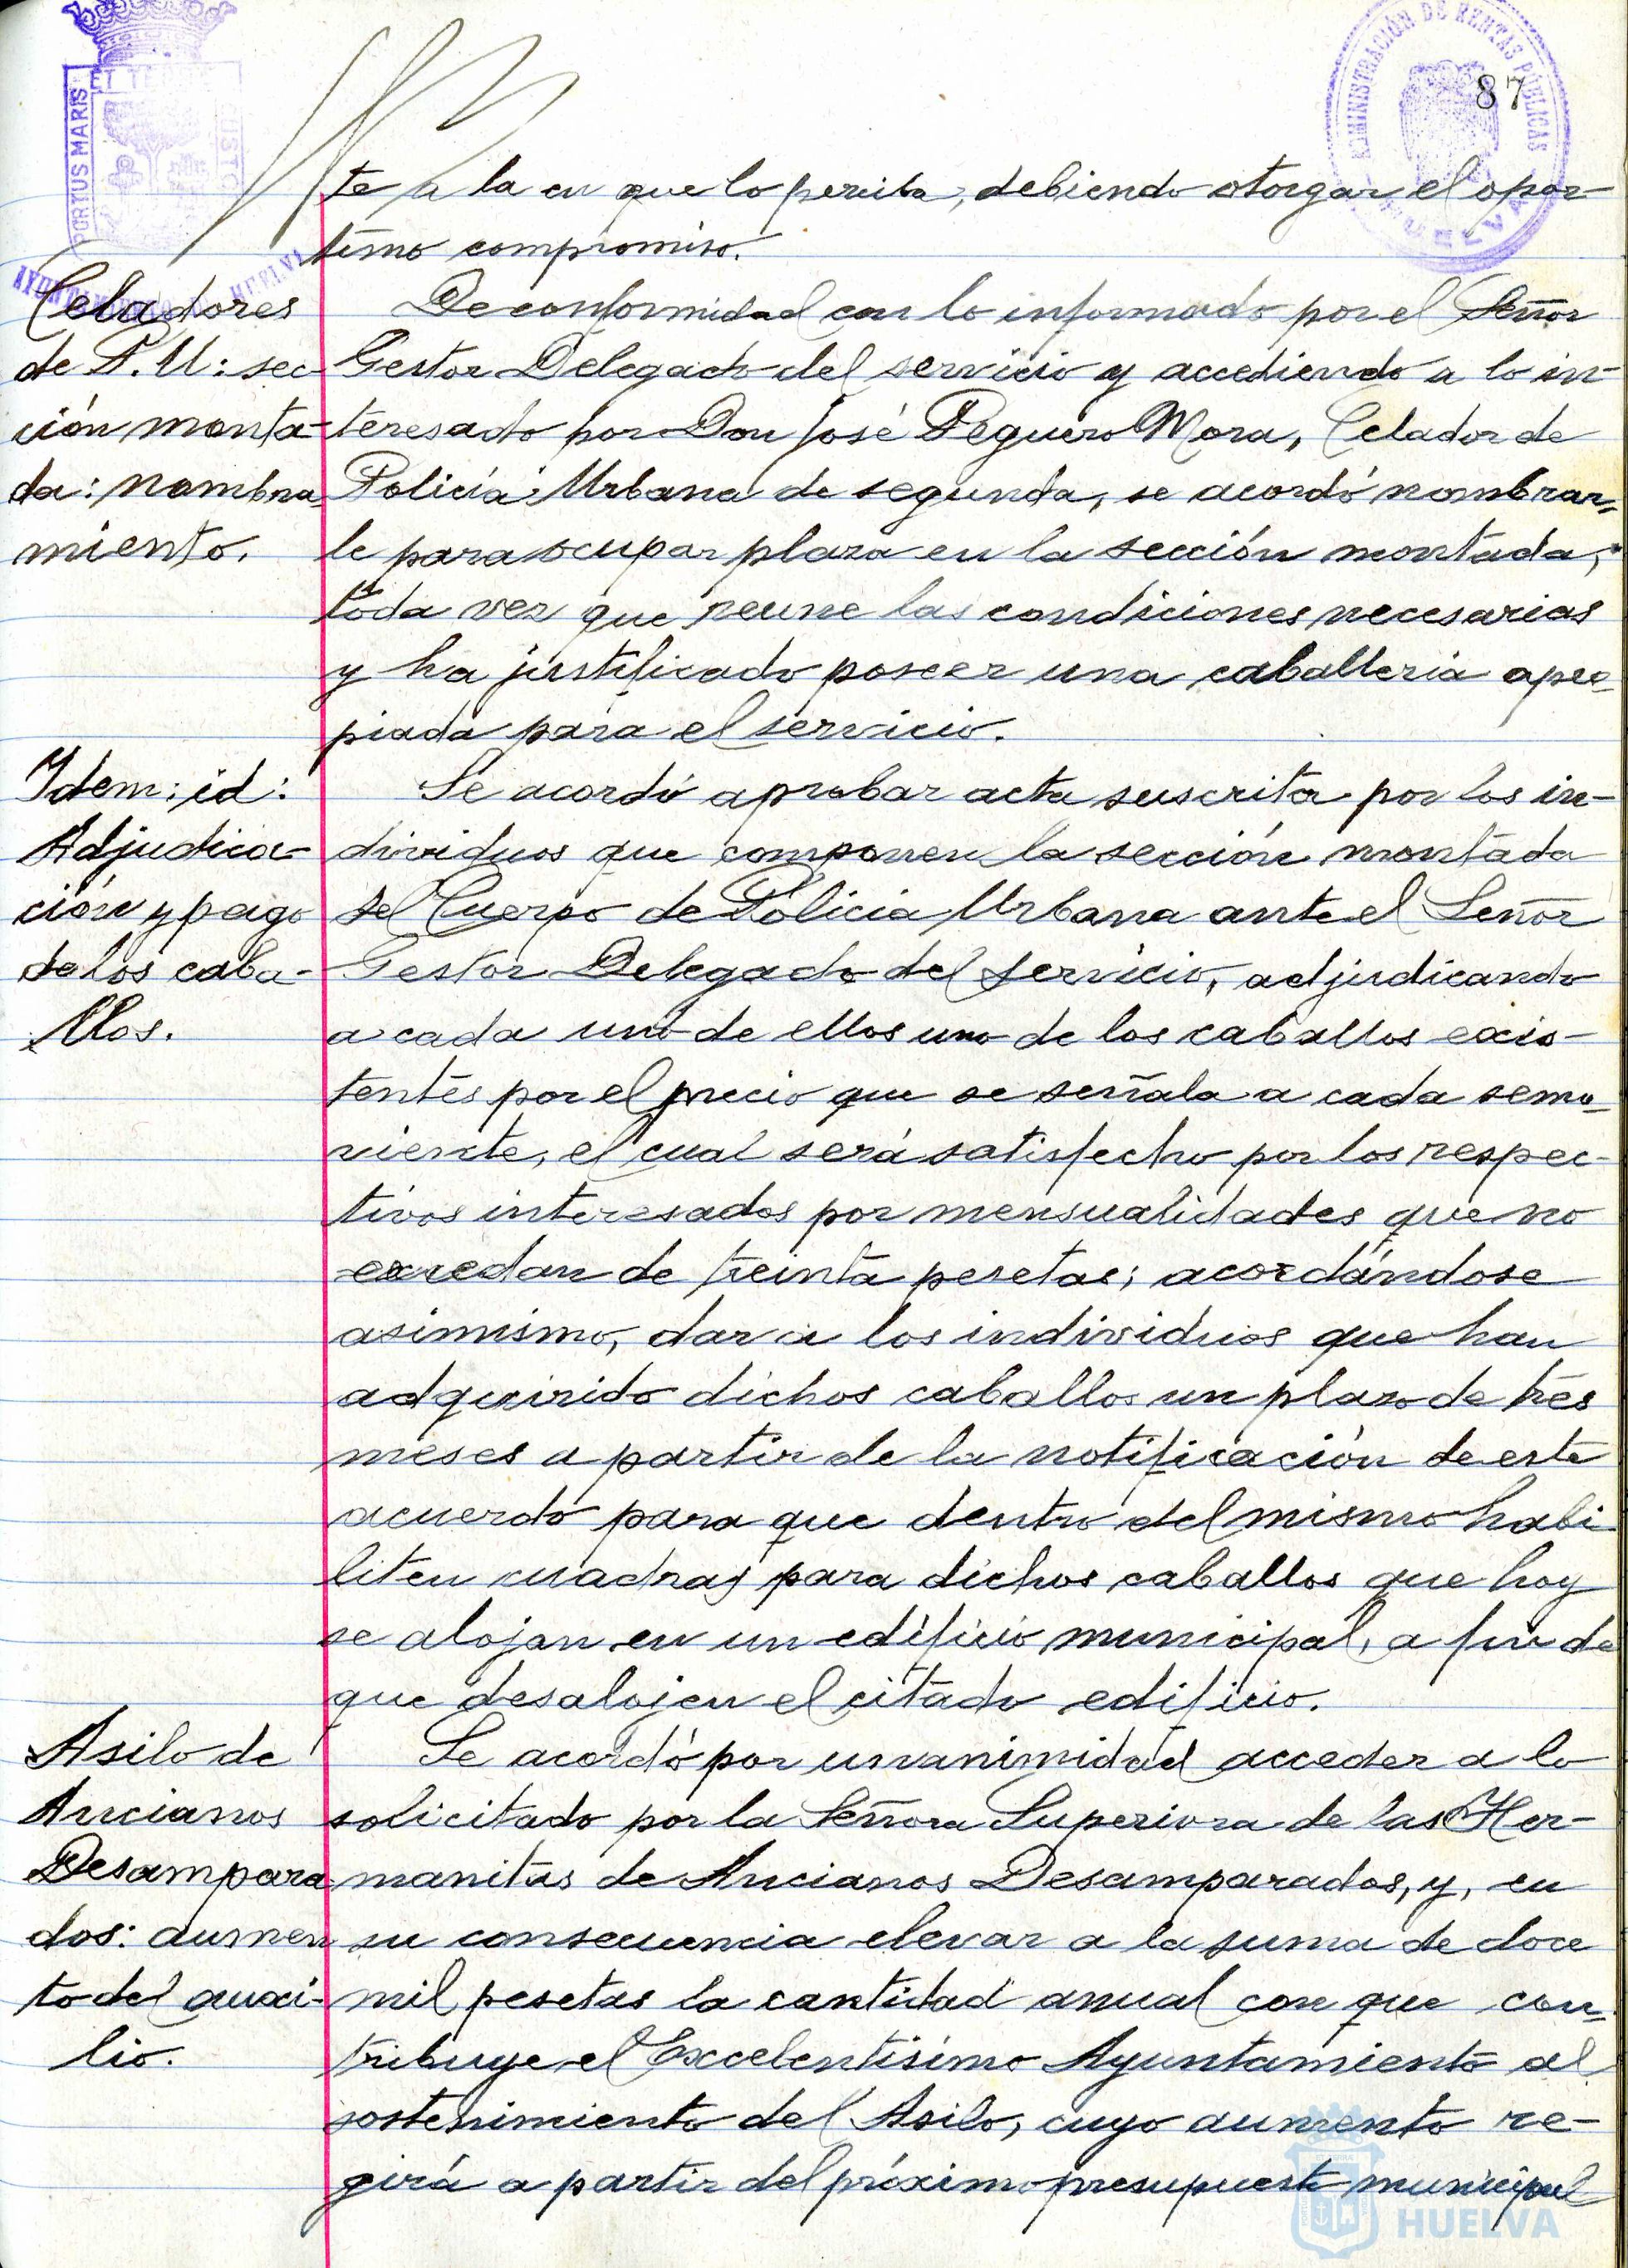 87
PORTUS MARIS
ET TERRE
CUSTO
AYUNTAMIENTO DE HUELVA
ADMINISTRACIÓN DE RENTAS PUBLICAS
HUELVA
te a la en que lo perciba, debiendo otorgar el opor-
tuno compromiso.
Celadores
de P. U: sec-
ción monta-
da: nombra
miento.
De conformidad con lo informado por el Señor
Gestor Delegado del servicio y accediendo a lo in-
teresado por Don José Peguero Mora, Celador de
Policía Urbana de segunda, se acordó nombrar-
le para ocupar plaza en la sección montada,
toda vez que reune las condiciones necesarias
y ha justificado poseer una caballeria apro-
piada para el servicio.
Idem: id:
Adjudica-
ción y pago
de los caba-
llos.
Se acordó aprobar acta suscrita por los in-
dividuos que componen la sección montada
del Cuerpo de Policia Urbana ante el Señor
Gestor Delegado del servicio, adjudicando
a cada uno de ellos uno de los caballos exis-
tentes por el precio que se señala a cada semo-
viente, el cual será satisfecho por los respec-
tivos interesados por mensualidades que no
excedan de treinta pesetas; acordándose
asimismo, dar a los individuos que han
adquirido dichos caballos un plazo de tres
meses a partir de la notificación de este
acuerdo para que dentro del mismo habi-
liten cuadras para dichos caballos que hoy
se alojan en un edificio municipal, a fin de
que desalojen el citado edificio.
Asilo de
Ancianos
Desampara
dos: aumen
to del auxi-
lio.
Se acordó por unanimidad acceder a lo
solicitado por la Señora Superiora de las Her-
manitas de Ancianos Desamparados, y, en
su consecuencia elevar a la suma de doce
mil pesetas la cantidad anual con que con-
tribuye el Excelentísimo Ayuntamiento al
sostenimiento del Asilo, cuyo aumento re-
girá a partir del próximo presupuesto municipal
HUELVA